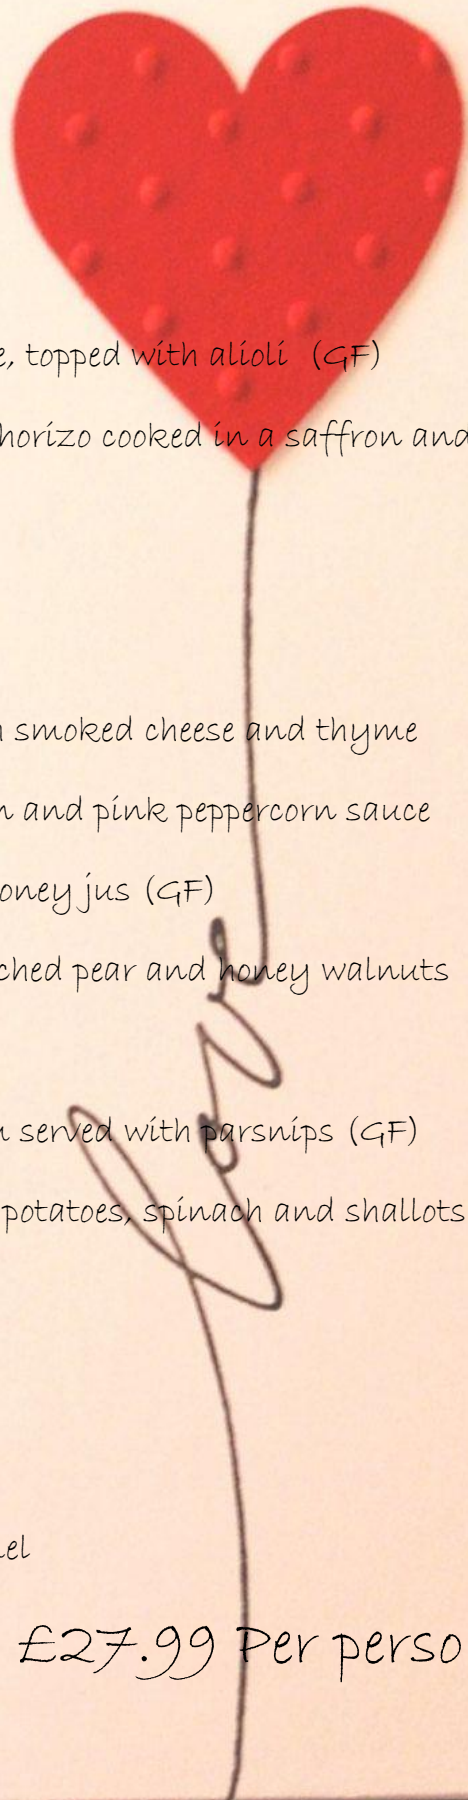 e, topped with alioli (GF)
horizo cooked in a saffron and
smoked cheese and thyme
n and pink peppercorn sauce
oney jus (GF)
ched pear and honey walnuts
love
served with parsnips (GF)
potatoes, spinach and shallots
el
£27.99 Per perso